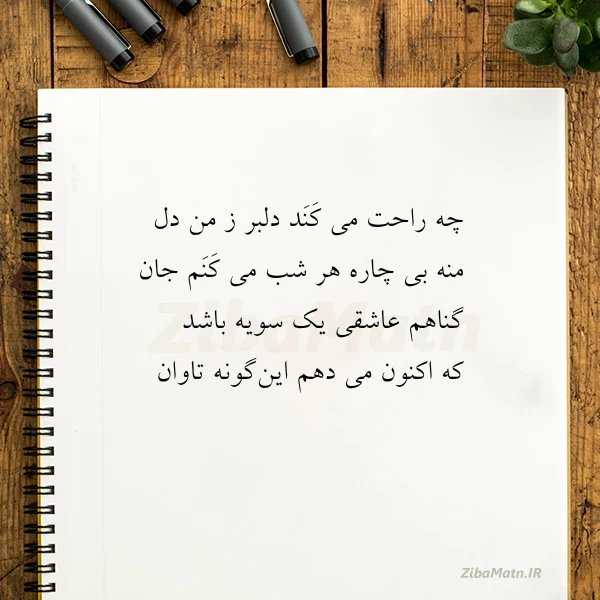 چه راحت می کَنَد دلبر ز من دل
منه بی چاره هر شب می کَنَم جان
گناهم عاشقی یک سویه باشد
که اکنون می دهم این‌گونه تاوان
ZibaMatn
ZibaMatn.IR